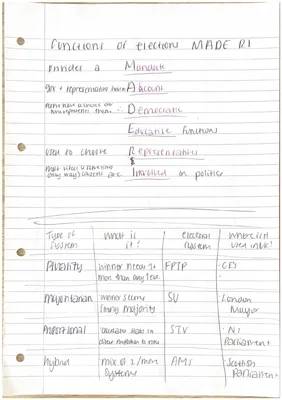 Functions of elections MADE RI
Provides a Mandate
Gov + representatives held to Account
Democratic
Educative function
Used to choose Representatives
&
Involved in politics
Type of System | What is it? | Electoral System | Where is it used in UK?
Plurality | Winner needs 1 more than any else | FPTP | GEs
Majoritarian | winner secures strong majority | SV | London Mayor
Proportional | allocates seats in direct proportion to votes | STV | NI Parliament
Hybrid | mix of 2/more systems | AMS | Scottish Parliament